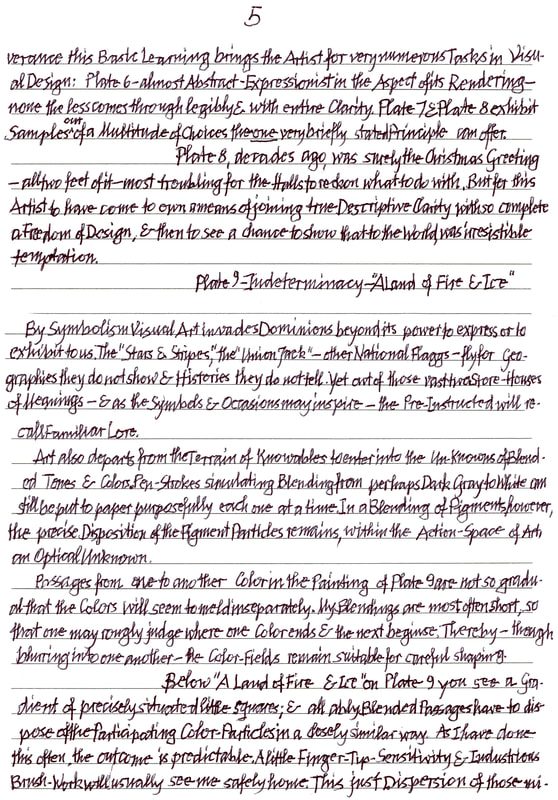 5
verance this Basic Learning brings the Artist for very numerous Tasks in Visu-
al Design: Plate 6 - almost Abstract-Expressionist in the Aspect of its Rendering—
none the less comes through legibly & with entire Clarity. Plate 7 & Plate 8 exhibit
Samples out of a Multitude of Choices the one very briefly stated Principle can offer.
Plate 8, decades ago, was surely the Christmas Greeting
—all two feet of it—most troubling for the Halls to reckon what to do with. But for this
Artist to have come to own a means of joining true Descriptive Clarity with so complete
a Freedom of Design, & then to see a chance to show that to the World, was irresistible
temptation.
Plate 9 - Indeterminacy - "A Land of Fire & Ice"
By Symbolism Visual Art invades Dominions beyond its power to express or to
exhibit to us. The "Stars & Stripes," the "Union Jack" – other National Flaggs – fly for Geo-
graphies they do not show & Histories they do not tell. Yet out of those vast Store-Houses
of Meanings – & as the Symbols & Occasions may inspire – the Pre-Instructed will re-
call Familiar Lore.
Art also departs from the Terrain of Knowables to enter into the Un-Knowns of Blend-
ed Tones & Colors. Pen-Strokes simulating Blending from perhaps Dark Gray to White can
still be put to paper purposefully each one at a time. In a Blending of Pigments, however,
the precise Disposition of the Pigment Particles remains, within the Action-Space of Art,
an Optical Unknown.
Passages from one to another Color in the Painting of Plate 9 are not so gradu-
al that the Colors will seem to meld inseparately. My Blendings are most often short, so
that one may rougly judge where one Color ends & the next beginse. Thereby – though
bluring into one another – the Color-Fields remain suitable for careful shaping.
Below "A Land of Fire & Ice" on Plate 9 you see a Gra-
dient of precisely situated little squares; & all ably Blended Passages have to dis-
pose of the Participating Color-Particles in a closely similar way. As I have done
this often, the outcome is predictable. A little Finger-Tip-Sensitivity & Industrious
Brush-Work will usually see me safely home. This just Dispersion of those mi-